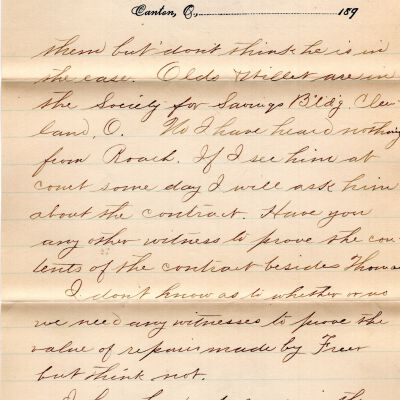 Canton, O., 189
them but dont think he is in
the case. Olds & Willet are in
the Society for Savings B'ld'g. Cleve-
land, O. No I have heard nothing
from Roach. If I see him at
court some day I will ask him
about the contract. Have you
any other witness to prove the con-
tents of the contract besides Thomas
I don't know as to whether or no
we need any witnesses to prove the
value of repairs made by Freer
but think not.